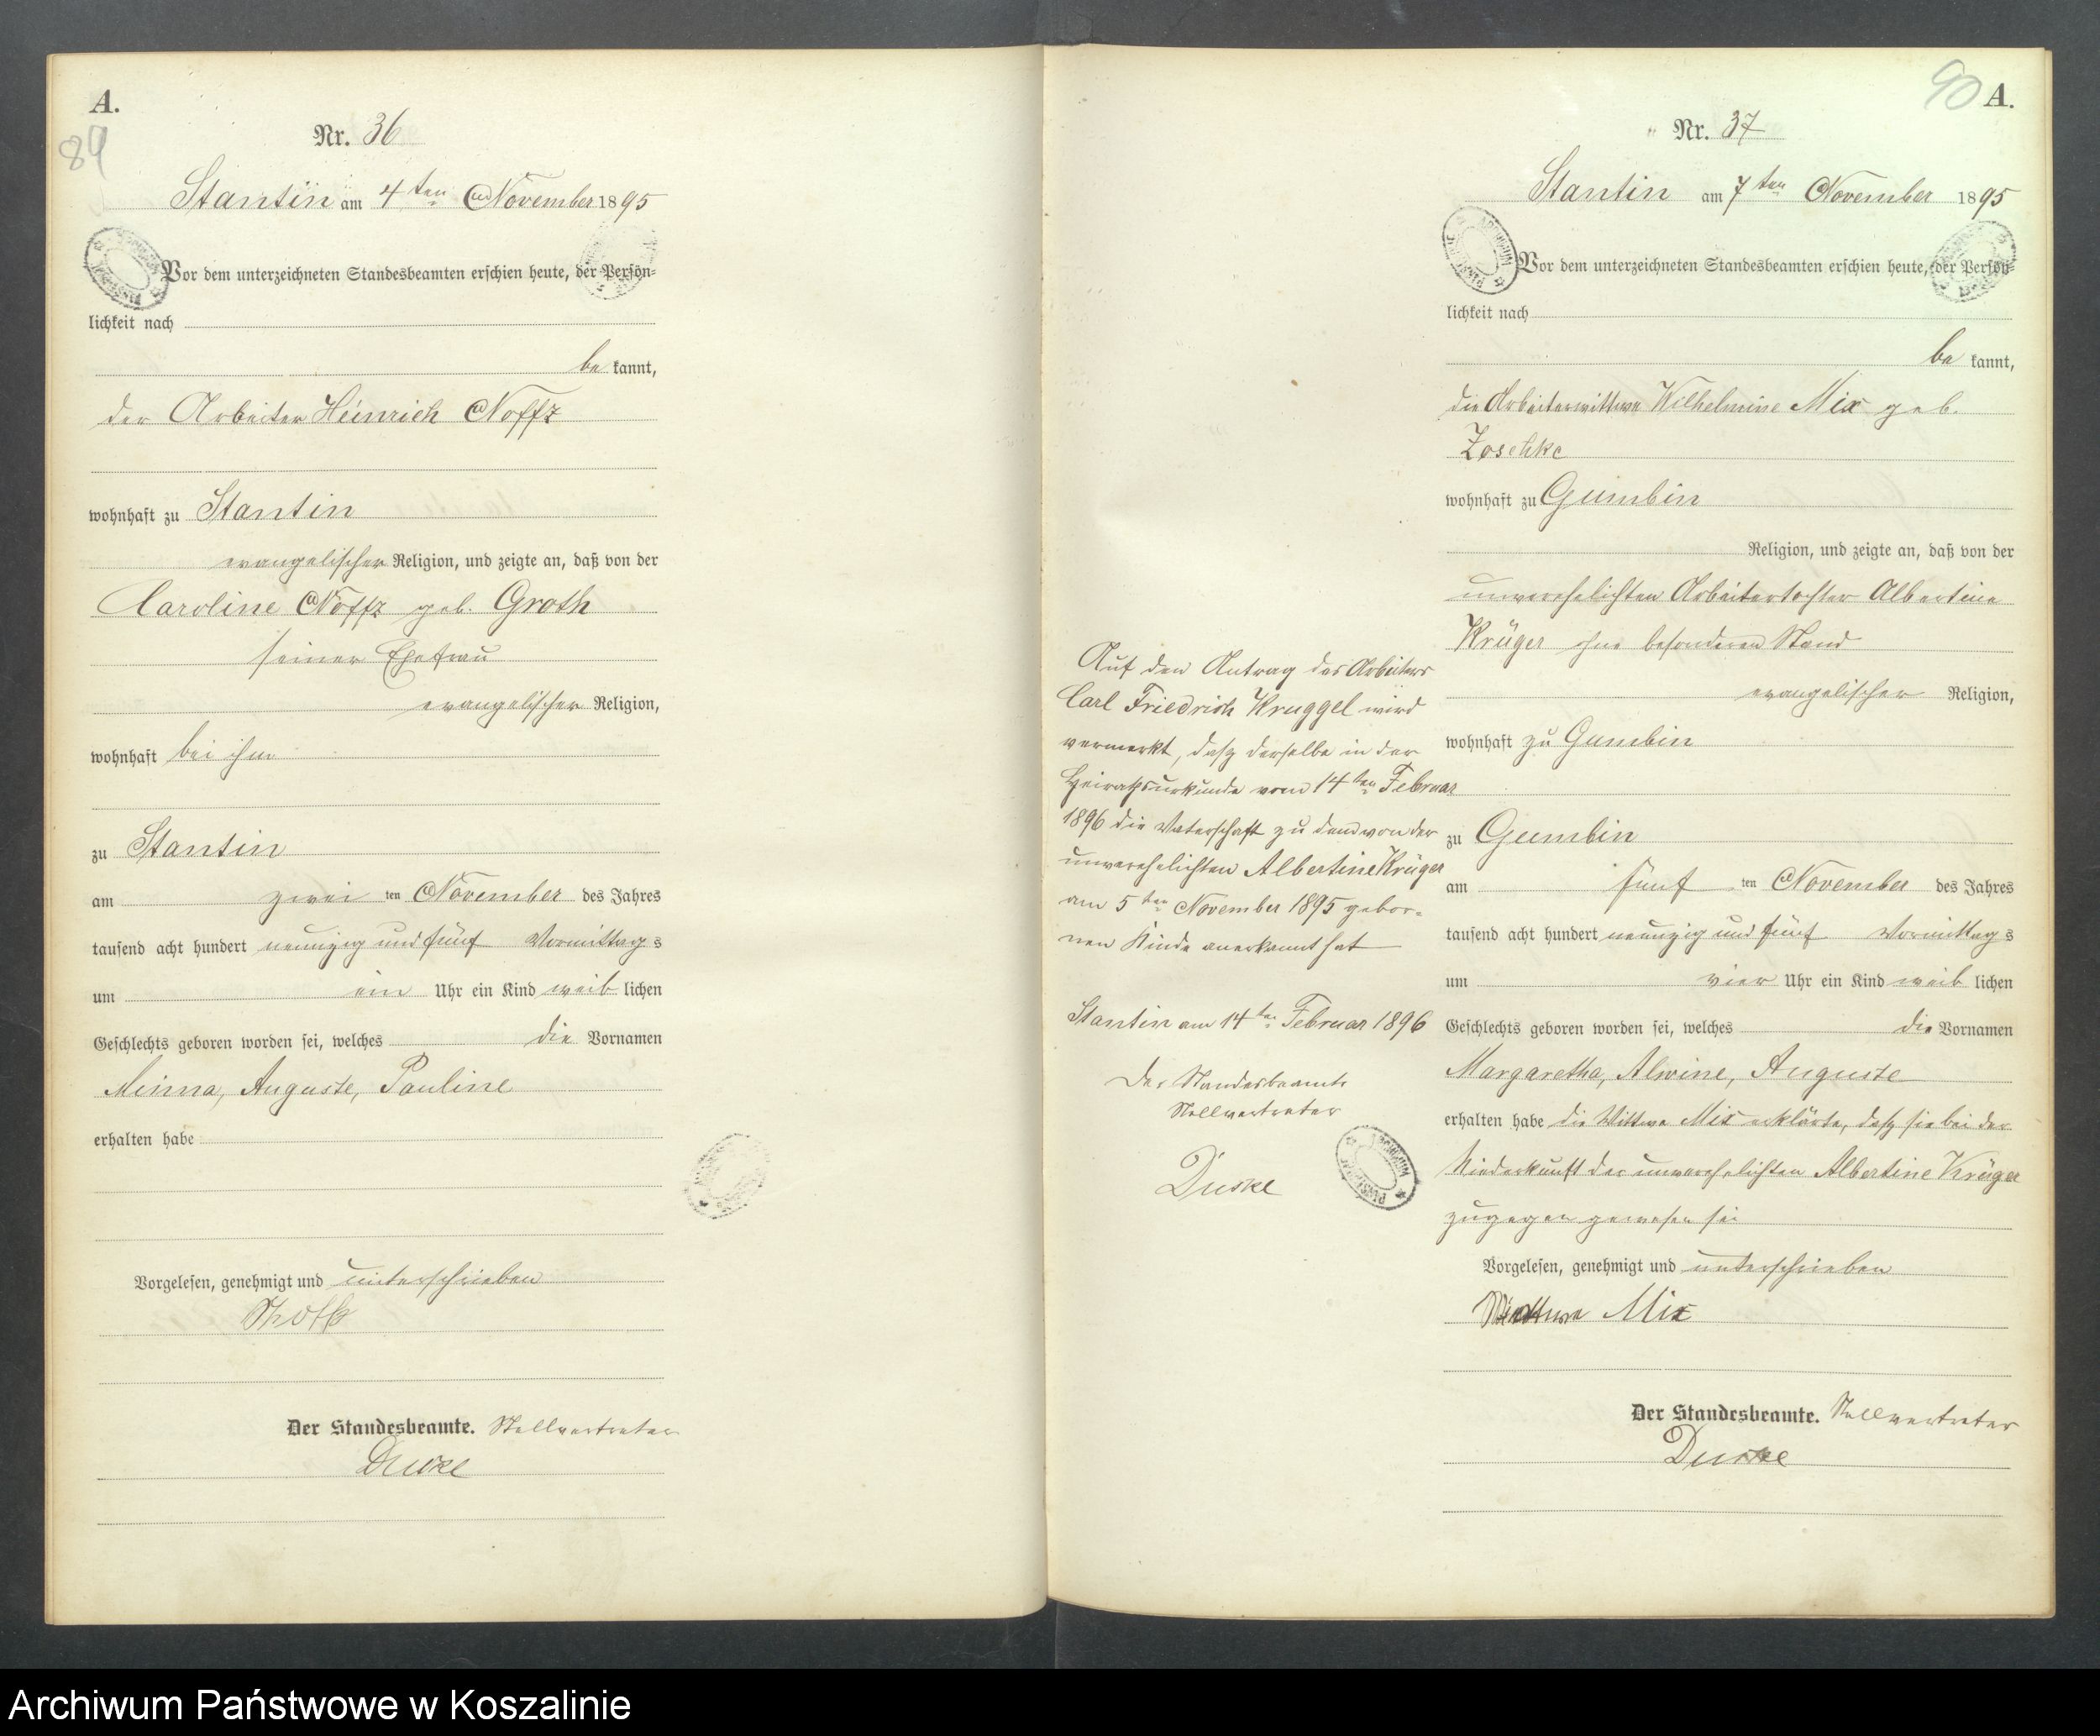 A.
89
Nr. 36
Stantin am 4ten November 1895
Vor dem unterzeichneten Standesbeamten erschien heute, der Persön-
lichkeit nach
be kannt,
der Arbeiter Heinrich Noffz
wohnhaft zu Stantin
evangelischer Religion, und zeigte an, daß von der
Caroline Noffz geb. Groth
seiner Ehefrau
evangelischer Religion,
wohnhaft bei ihm
zu Stantin
am zwei ten November des Jahres
tausend acht hundert neunzig und fünf Vormittag s
um ein Uhr ein Kind weib lichen
Geschlechts geboren worden sei, welches die Vornamen
Minna, Auguste, Pauline
erhalten habe
Vorgelesen, genehmigt und unterschrieben
Der Standesbeamte. Stellvertreter
Duske
90 A.
Nr. 37
Stantin am 7ten November 1895
Vor dem unterzeichneten Standesbeamten erschien heute, der Persön-
lichkeit nach
be kannt,
die Arbeiterwittwe Wilhelmine Mix geb.
Zoschke
wohnhaft zu Gumbin
Religion, und zeigte an, daß von der
unverehelichten Arbeitertochter Albertine
Krüger ohne besonderen Stand
evangelischer Religion,
wohnhaft zu Gumbin
zu Gumbin
am fünf ten November des Jahres
tausend acht hundert neunzig und fünf Vormittag s
um vier Uhr ein Kind weib lichen
Geschlechts geboren worden sei, welches die Vornamen
Margaretha, Alwine, Auguste
erhalten habe die Wittwe Mix erklärte, daß sie bei der
Niederkunft der unverehelichten Albertine Krüger
zugegen gewesen sei
Vorgelesen, genehmigt und unterschrieben
Wittwe Mix
Der Standesbeamte. Stellvertreter
Duske
Auf den Antrag des Arbeiters
Carl Friedrich Kruggel wird
vermerkt, daß derselbe in der
Heirathsurkunde vom 14ten Februar
1896 die Vaterschaft zu dem von der
unverehelichten Albertine Krüger
am 5ten November 1895 gebor-
nen Kinde anerkannt hat
Stantin am 14ten Februar 1896
Der Standesbeamte
Stellvertreter
Duske
Archiwum Państwowe w Koszalinie